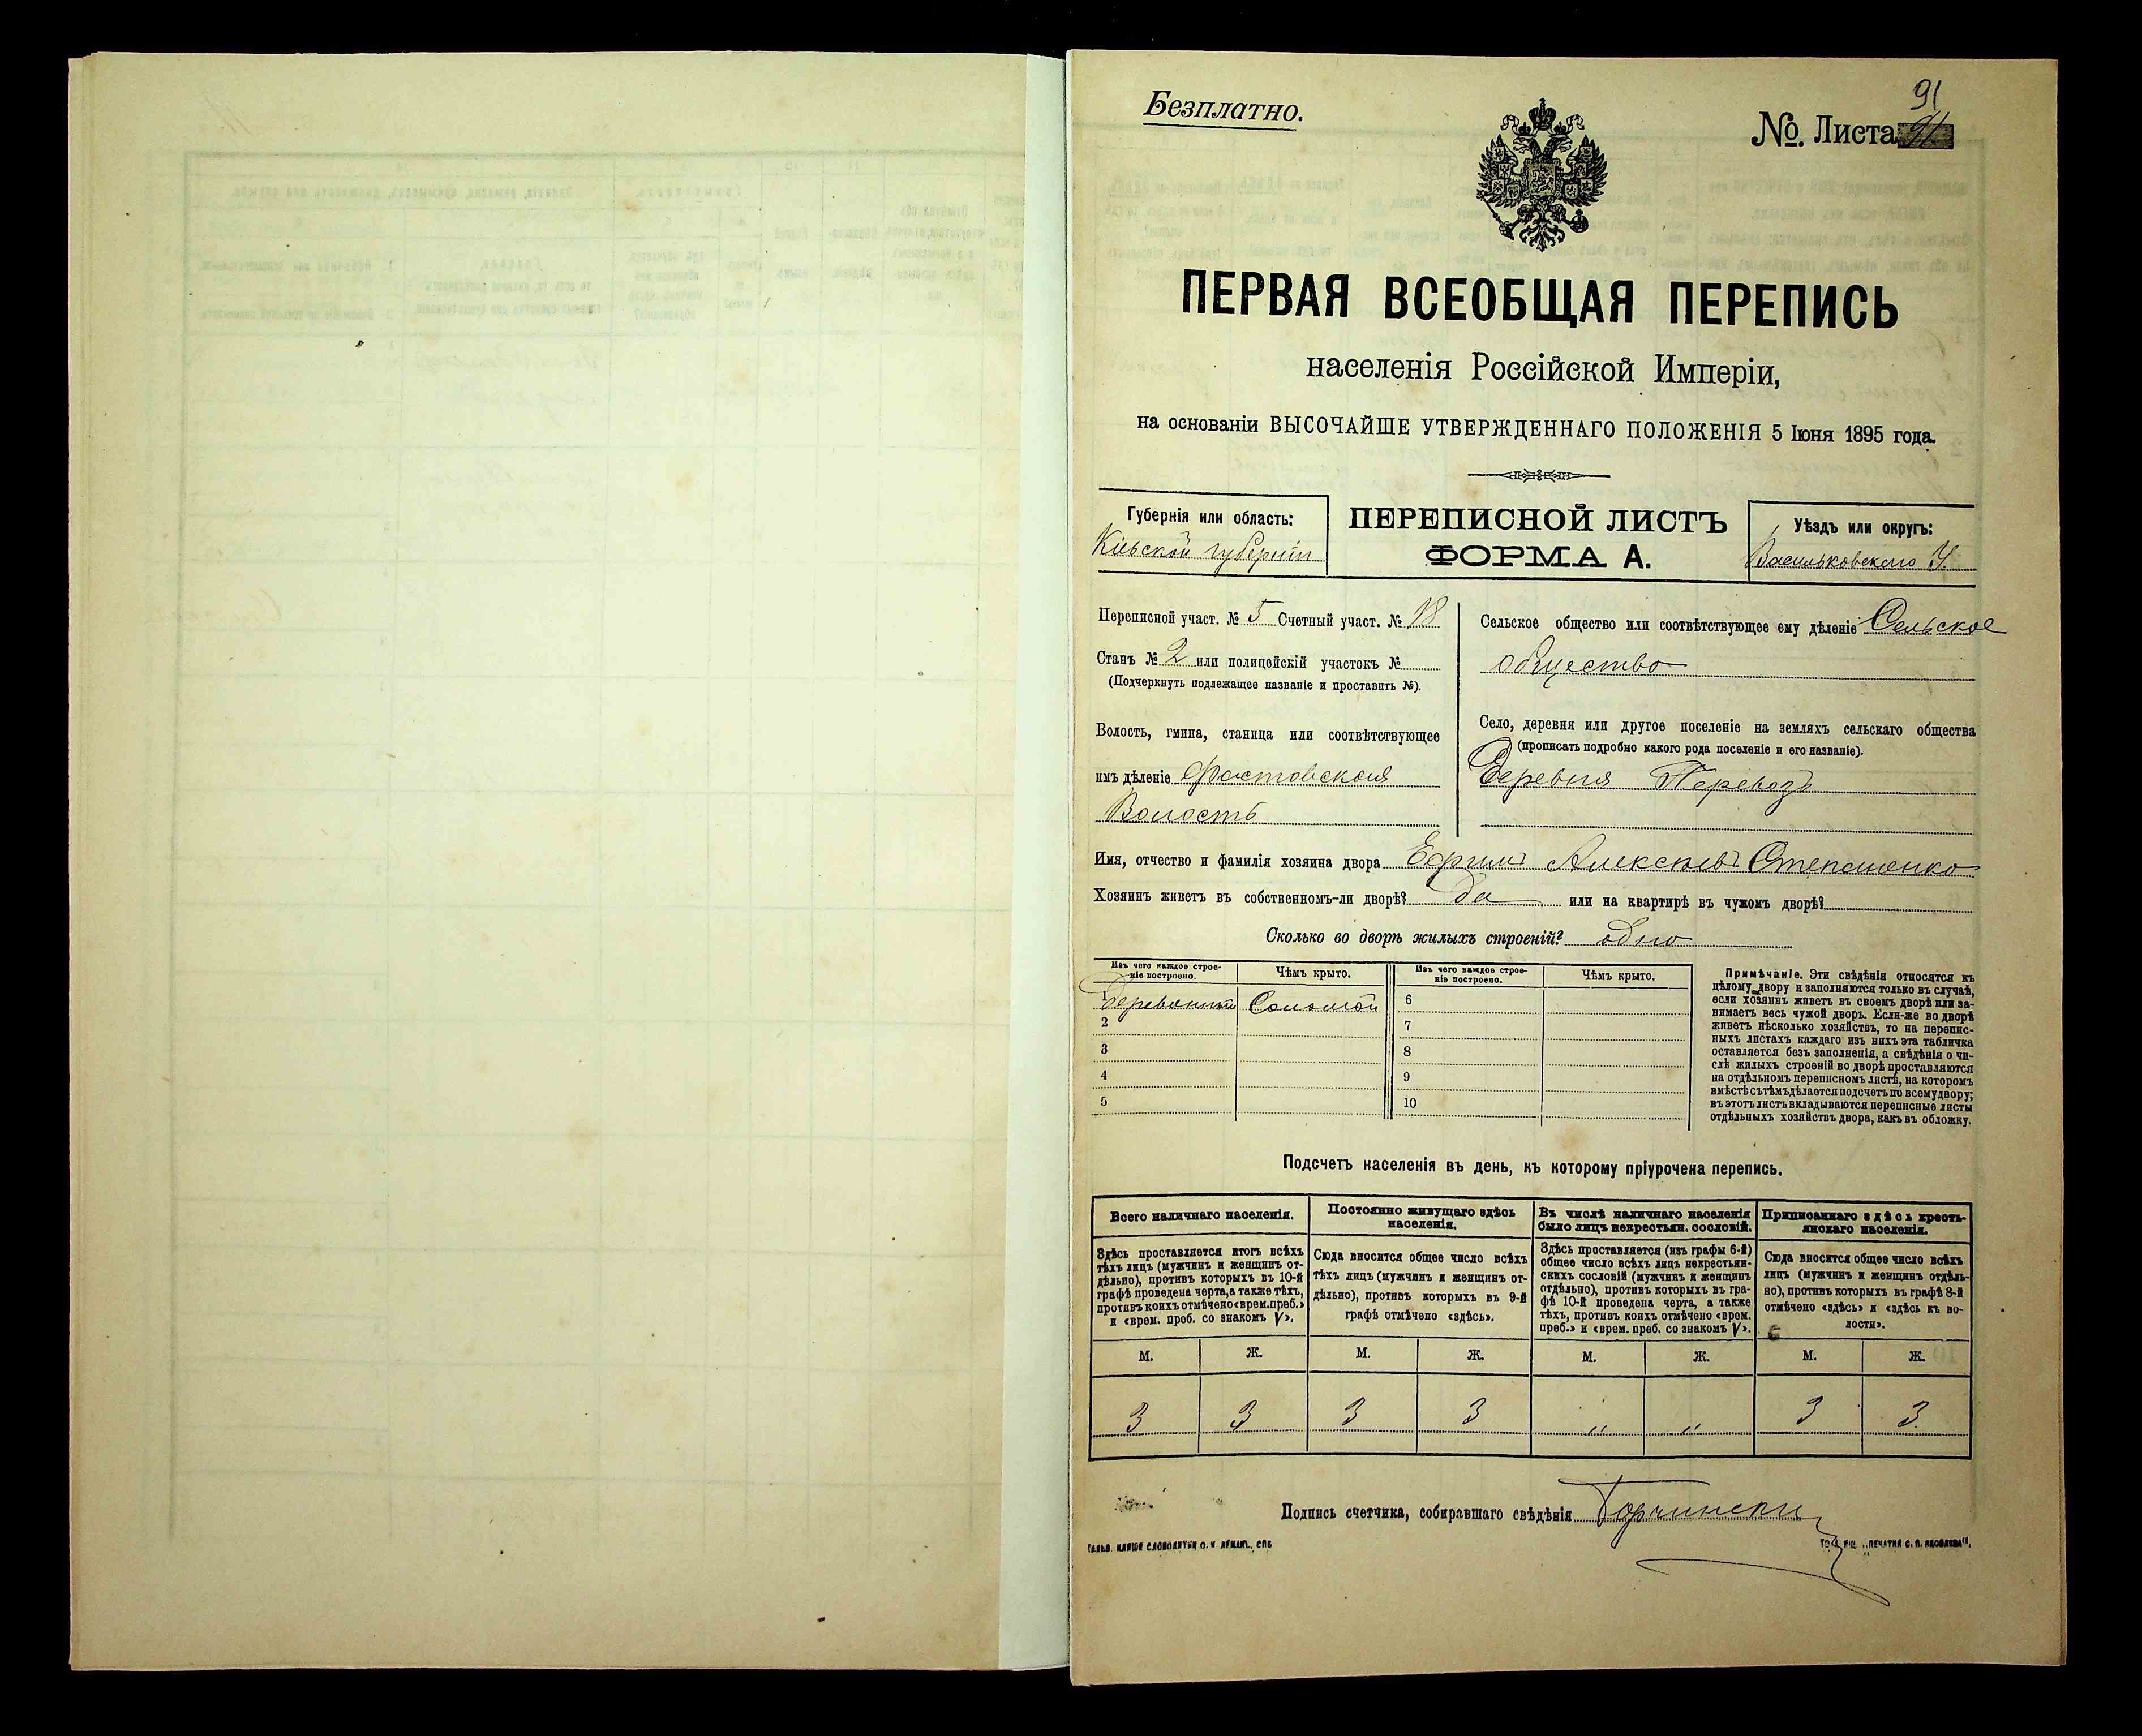 Безплатно.
91
№. Листа 91
ПЕРВАЯ ВСЕОБЩАЯ ПЕРЕПИСЬ
населенія Россійской Имперіи,
на основаніи ВЫСОЧАЙШЕ УТВЕРЖДЕННАГО ПОЛОЖЕНІЯ 5 Іюня 1895 года.
Губернія или область:
Кіевской губерніи
ПЕРЕПИСНОЙ ЛИСТЪ
ФОРМА А.
Уѣздъ или округъ:
Васильковскаго У.
Переписной участ. № 5 Счетный участ. № 18
Станъ № 2 или полицейскій участокъ №
(Подчеркнуть подлежащее названіе и проставить №).
Волость, гмина, станица или соотвѣтствующее
имъ дѣленіе Фастовская
Волость
Сельское общество или соотвѣтствующее ему дѣленіе Сельское
общество
Село, деревня или другое поселеніе на земляхъ сельскаго общества
(прописать подробно какого рода поселеніе и его названіе).
Деревня Перевозъ
Имя, отчество и фамилія хозяина двора Ефимъ Алексѣевъ Степаненко
Хозяинъ живетъ въ собственномъ-ли дворѣ? да или на квартирѣ въ чужомъ дворѣ?
Сколько во дворѣ жилыхъ строеній? одно
Изъ чего каждое строе-
ніе построено.
Чѣмъ крыто.
Изъ чего каждое строе-
ніе построено.
Чѣмъ крыто.
1 Соломой 6
2 7
3 8
4 9
5 10
Примѣчаніе. Эти свѣдѣнія относятся къ
цѣлому двору и заполняются только въ случаѣ,
если хозяинъ живетъ въ своемъ дворѣ или за-
нимаетъ весь чужой дворъ. Если-же во дворѣ
живетъ нѣсколько хозяйствъ, то на перепис-
ныхъ листахъ каждаго изъ нихъ эта табличка
оставляется безъ заполненія, а свѣдѣнія о чи-
слѣ жилыхъ строеній во дворѣ проставляются
на отдѣльномъ переписномъ листѣ, на которомъ
вмѣстѣ съ тѣмъ дѣлается подсчетъ по всему двору;
въ этотъ листъ вкладываются переписные листы
отдѣльныхъ хозяйствъ двора, какъ въ обложку.
Подсчетъ населенія въ день, къ которому пріурочена перепись.
Всего наличнаго населенія.
Здѣсь проставляется итогъ всѣхъ
тѣхъ лицъ (мужчинъ и женщинъ от-
дѣльно), противъ которыхъ въ 10-й
графѣ проведена черта, а также тѣхъ,
противъ коихъ отмѣчено «врем. преб.»
и «врем. преб. со знакомъ V».
Постоянно живущаго здѣсь
населенія.
Сюда вносится общее число всѣхъ
тѣхъ лицъ (мужчинъ и женщинъ от-
дѣльно), противъ которыхъ въ 9-й
графѣ отмѣчено «здѣсь».
Въ числѣ наличнаго населенія
было лицъ некрестьян. сословій.
Здѣсь проставляется (изъ графы 6-й)
общее число всѣхъ лицъ некрестьян-
скихъ сословій (мужчинъ и женщинъ
отдѣльно), противъ которыхъ въ гра-
фѣ 10-й проведена черта, а также
тѣхъ, противъ коихъ отмѣчено «врем.
преб.» и «врем. преб. со знакомъ V».
Приписаннаго здѣсь кресть-
янскаго населенія.
Сюда вносится общее число всѣхъ
лицъ (мужчинъ и женщинъ отдѣль-
но), противъ которыхъ въ графѣ 8-й
отмѣчено «здѣсь» и «здѣсь къ во-
лости».
М. Ж. М. Ж. М. Ж. М. Ж.
3 3 3 3 " " 3 3
Подпись счетчика, собиравшаго свѣдѣнія